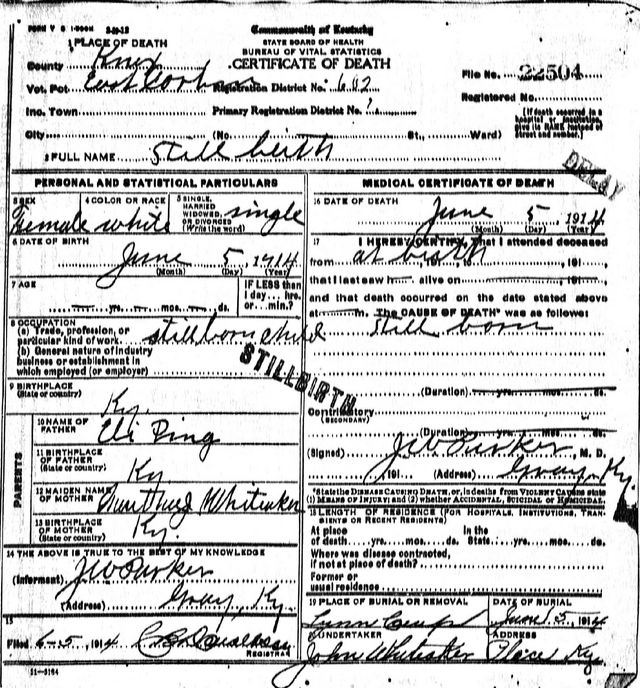 FORM V. S. 1-
Commonwealth of Kentucky
STATE BOARD OF HEALTH
BUREAU OF VITAL STATISTICS
CERTIFICATE OF DEATH
1 PLACE OF DEATH
County Knox
Vot. Pct. East Corbin Registration District No. 602
File No. 22504
Inc. Town Primary Registration District No.
Registered No.
City (No. St., Ward)
[If death occurred in a hospital or institution, give its NAME instead of street and number.]
2 FULL NAME Still birth
DELAY
PERSONAL AND STATISTICAL PARTICULARS
3 SEX
Female
4 COLOR OR RACE
white
5 SINGLE, MARRIED WIDOWED, OR DIVORCED (Write the word)
single
6 DATE OF BIRTH
June 5, 1914
(Month) (Day) (Year)
7 AGE
yrs. mos. ds.
IF LESS than 1 day... hrs. or... min.?
8 OCCUPATION
(a) Trade, profession, or particular kind of work stillborn child
(b) General nature of industry business or establishment in which employed (or employer)
STILLBIRTH
9 BIRTHPLACE
(State or country)
Ky.
PARENTS
10 NAME OF FATHER
11 BIRTHPLACE OF FATHER
(State or country)
Ky
12 MAIDEN NAME OF MOTHER Whiteaker
13 BIRTHPLACE OF MOTHER
(State or country)
Ky.
14 THE ABOVE IS TRUE TO THE BEST OF MY KNOWLEDGE
(Informant) J W Parker
(Address) Gray, Ky.
15
Filed 6-5, 1914
REGISTRAR
11-3184
MEDICAL CERTIFICATE OF DEATH
16 DATE OF DEATH
June 5, 1914
(Month) (Day) (Year)
17 I HEREBY CERTIFY, That I attended deceased
from at birth, to 191
that I last saw h alive on 191
and that death occurred on the date stated above
at m. The CAUSE OF DEATH* was as follows:
Still born
(Duration) yrs. mos. ds.
Contributory
(SECONDARY)
(Duration) yrs. mos. ds.
(Signed) J W Parker M. D.
191 (Address) Gray, Ky.
*State the DISEASE CAUSING DEATH, or, in deaths from VIOLENT CAUSES state (1) MEANS OF INJURY; and (2) whether ACCIDENTAL, SUICIDAL or HOMICIDAL.
18 LENGTH OF RESIDENCE (FOR HOSPITALS, INSTITUTIONS, TRANSIENTS OR RECENT RESIDENTS)
At place of death yrs. mos. ds. In the State yrs. mos. ds.
Where was disease contracted, if not at place of death?
Former or usual residence
19 PLACE OF BURIAL OR REMOVAL
Lynn Camp
DATE OF BURIAL
June 5, 1914
20 UNDERTAKER
John Whiteaker
ADDRESS
Place Ky.